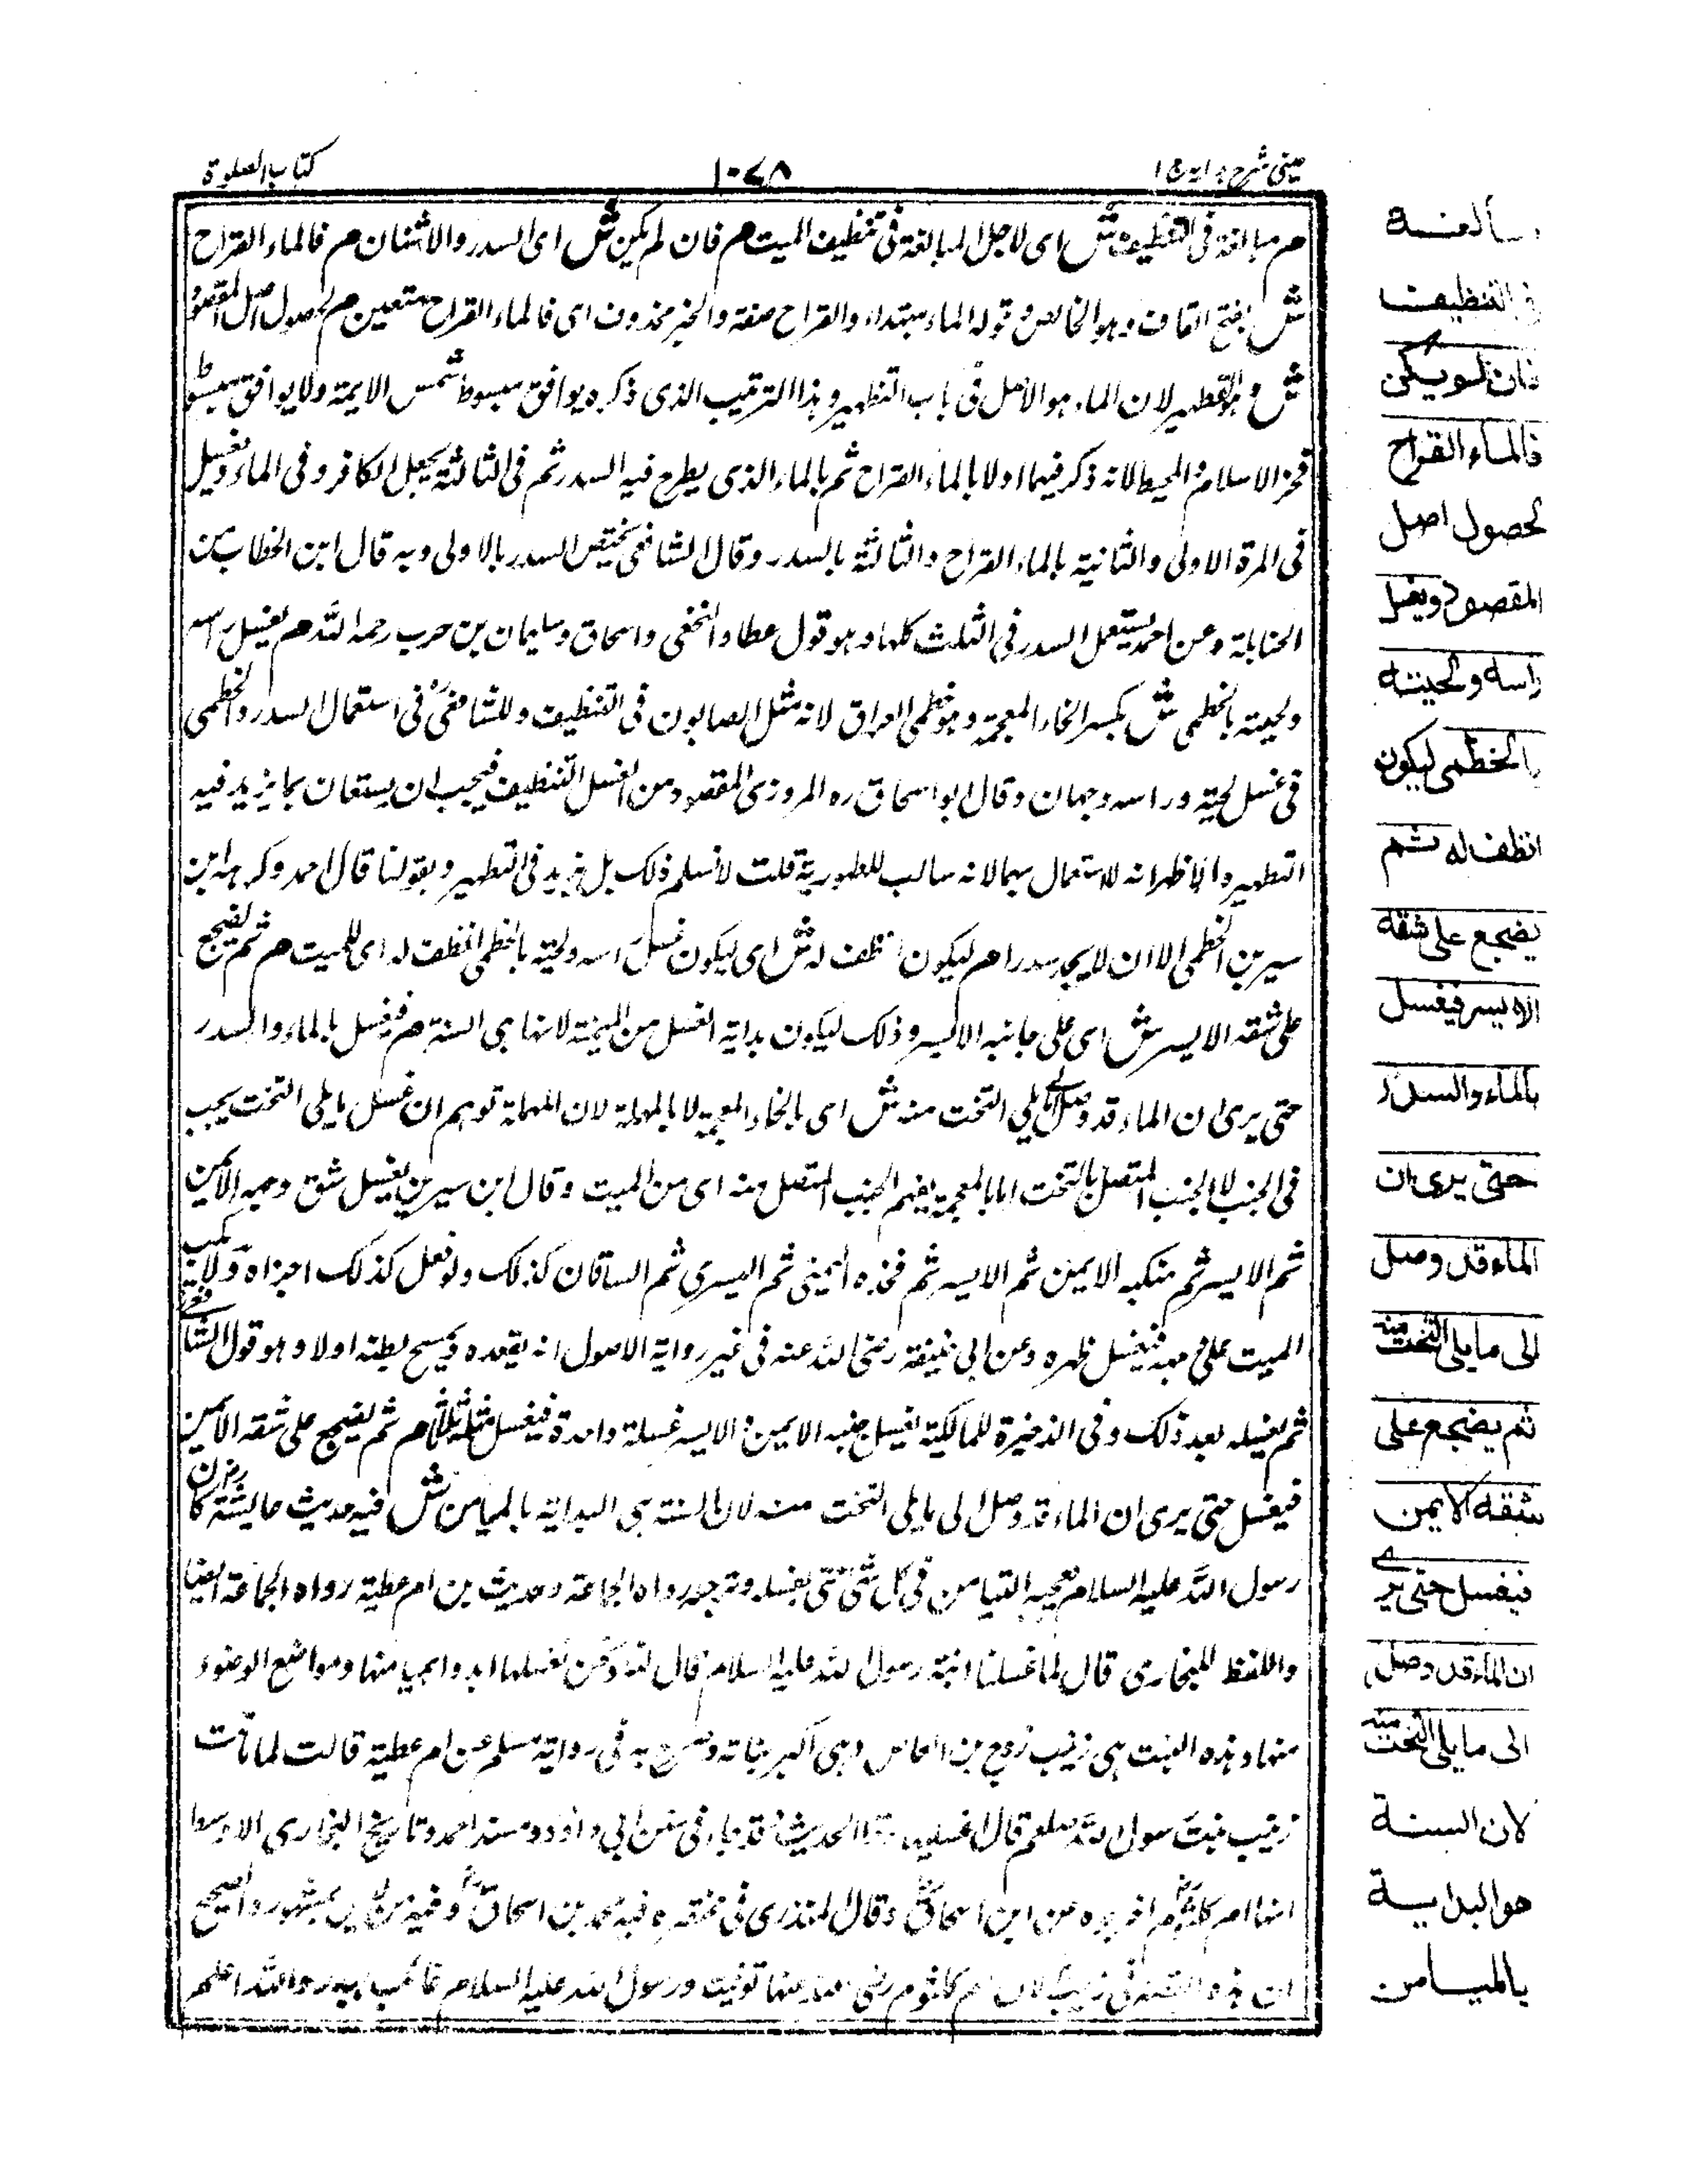 عینی شرح هدایہ ج ۱
۱۰۷۸
کتاب الصلوة
م مبالغة فی التنظیف ش ای لاجل المبالغة فی تنظیف المیت م فان لم یکن ش ای السدر والاشنان م فالماء القراح
ش بفتح القاف وهو الخالص وقوله الماء مبتداء والقراح صفته والخبر محذوف ای فالماء القراح متعین م لحصول اصل المقصود
ش وهو التطهیر لان الماء هو الاصل فی باب التطهیر وهذا الترتیب الذی ذکره یوافق مبسوط شمس الایمة ولا یوافق مبسوط
فخر الاسلام والمحیط لانه ذکر فیهما اولا بالماء القراح ثم بالماء الذی یطرح فیه السدر ثم فی الثالثة یجعل الکافور فی الماء ویغسل
فی المرة الاولی والثانیة بالماء القراح والثالثة بالسدر وقال الشافعی یختص السدر بالاولی وبه قال ابن الخطاب من
الحنابلة وعن احمد یستعمل السدر فی الثلث کلها وهو قول عطا والنخعی واسحاق وسلیمان بن حرب رحمه الله م یغسل راسه
ولحیته بالخطمی ش بکسر الخاء المعجمة وهو خطمی العراق لانه مثل الصابون فی التنظیف وللشافعی فی استعمال السدر والخطمی
فی غسل لحیته وراسه وجهان وقال ابو اسحاق ره المروزی المقصود من الغسل التنظیف فیجب ان یستعان بما یزید فیه
التطهیر والاظهر انه لا استعمال بهما لانه سالب للطهوریة قلت لا نسلم ذلک بل یزید فی التطهیر وبقولنا قال احمد وکره ابن
سیرین الخطمی الا ان لا یجد سدرا م لیکون انظف له ش ای لیکون غسل راسه ولحیته بالخطمی انظف له ای للمیت م ثم یضجع
علی شقه الایسر ش ای علی جانبه الایسر وذلک لیکون بدایة الغسل من المیمنة لانها هی السنة م فیغسل بالماء والسدر
حتی یری ان الماء قد وصل الی ما یلی التخت منه ش ای بالخاء المعجمة لا بالمهملة لان المهملة توهم ان غسل ما یلی التخت یجب
فی الجنب لا الجنب المتصل بالتخت اما بالمعجمة یفهم الجنب المتصل منه ای من المیت وقال ابن سیرین یغسل شق وجهه الایمن
ثم الایسر ثم منکبه الایمن ثم الایسر ثم فخذه الیمنی ثم الیسری ثم الساقان کذلک ولو فعل کذلک اجزاه ولا یکب
المیت علی وجهه فیغسل ظهره وعن ابی حنیفة رضی الله عنه فی غیر روایة الاصول انه یقعده ویمسح بطنه اولا وهو قول الشافعی
ثم یغسله بعد ذلک وفی الذخیرة للمالکیة یغسل جنبه الایمن والایسر غسلة واحدة فیغسل مثله ثلثا م ثم یضجع علی شقه الایمن
فیغسل حتی یری ان الماء قد وصل الی ما یلی التخت منه لان السنة هی البدایة بالمیامن ش فیه حدیث عایشة کان
رسول الله علیه السلام یعجبه التیامن فی کل شئ حتی بغسله وترجله رواه الجماعة وحدیث بن ام عطیة رواه الجماعة ایضا
واللفظ للبخاری قال لما غسلنا ابنة رسول الله علیه السلام قال لنا ونحن نغسلها ابدوا بمیامنها ومواضع الوضوء
منها وهذه البنت هی زینب زوج بن العاص وهی اکبر بناته وصرح به فی روایة مسلم عن ام عطیة قالت لما ماتت
زینب بنت رسول الله صلعم قال اغسلیها الحدیث وقد جاء فی سنن ابی داؤد ومسند احمد وتاریخ البخاری الاوسط
انها ام کلثوم اخرجوه عن ابن اسحاق وقال المنذری فی مختصره فیه محمد بن اسحاق وفیه من لیس بمشهور والصحیح
ان هذه القصة فی زینب لان ام کلثوم رضی الله عنها توفیت ورسول الله علیه السلام غائب ببدر والله اعلم
مبالغة
فی التنظیف
فان لم یکن
فالماء القراح
لحصول اصل
المقصود ویغسل
راسه ولحیته
بالخطمی لیکون
انظف له ثم
یضجع علی شقه
الایسر فیغسل
بالماء والسدر
حتی یری ان
الماء قد وصل
الی ما یلی التخت منه
ثم یضجع علی
شقه الایمن
فیغسل حتی یری
ان الماء قد وصل
الی ما یلی التخت منه
لان السنة
هو البدایة
بالمیامن